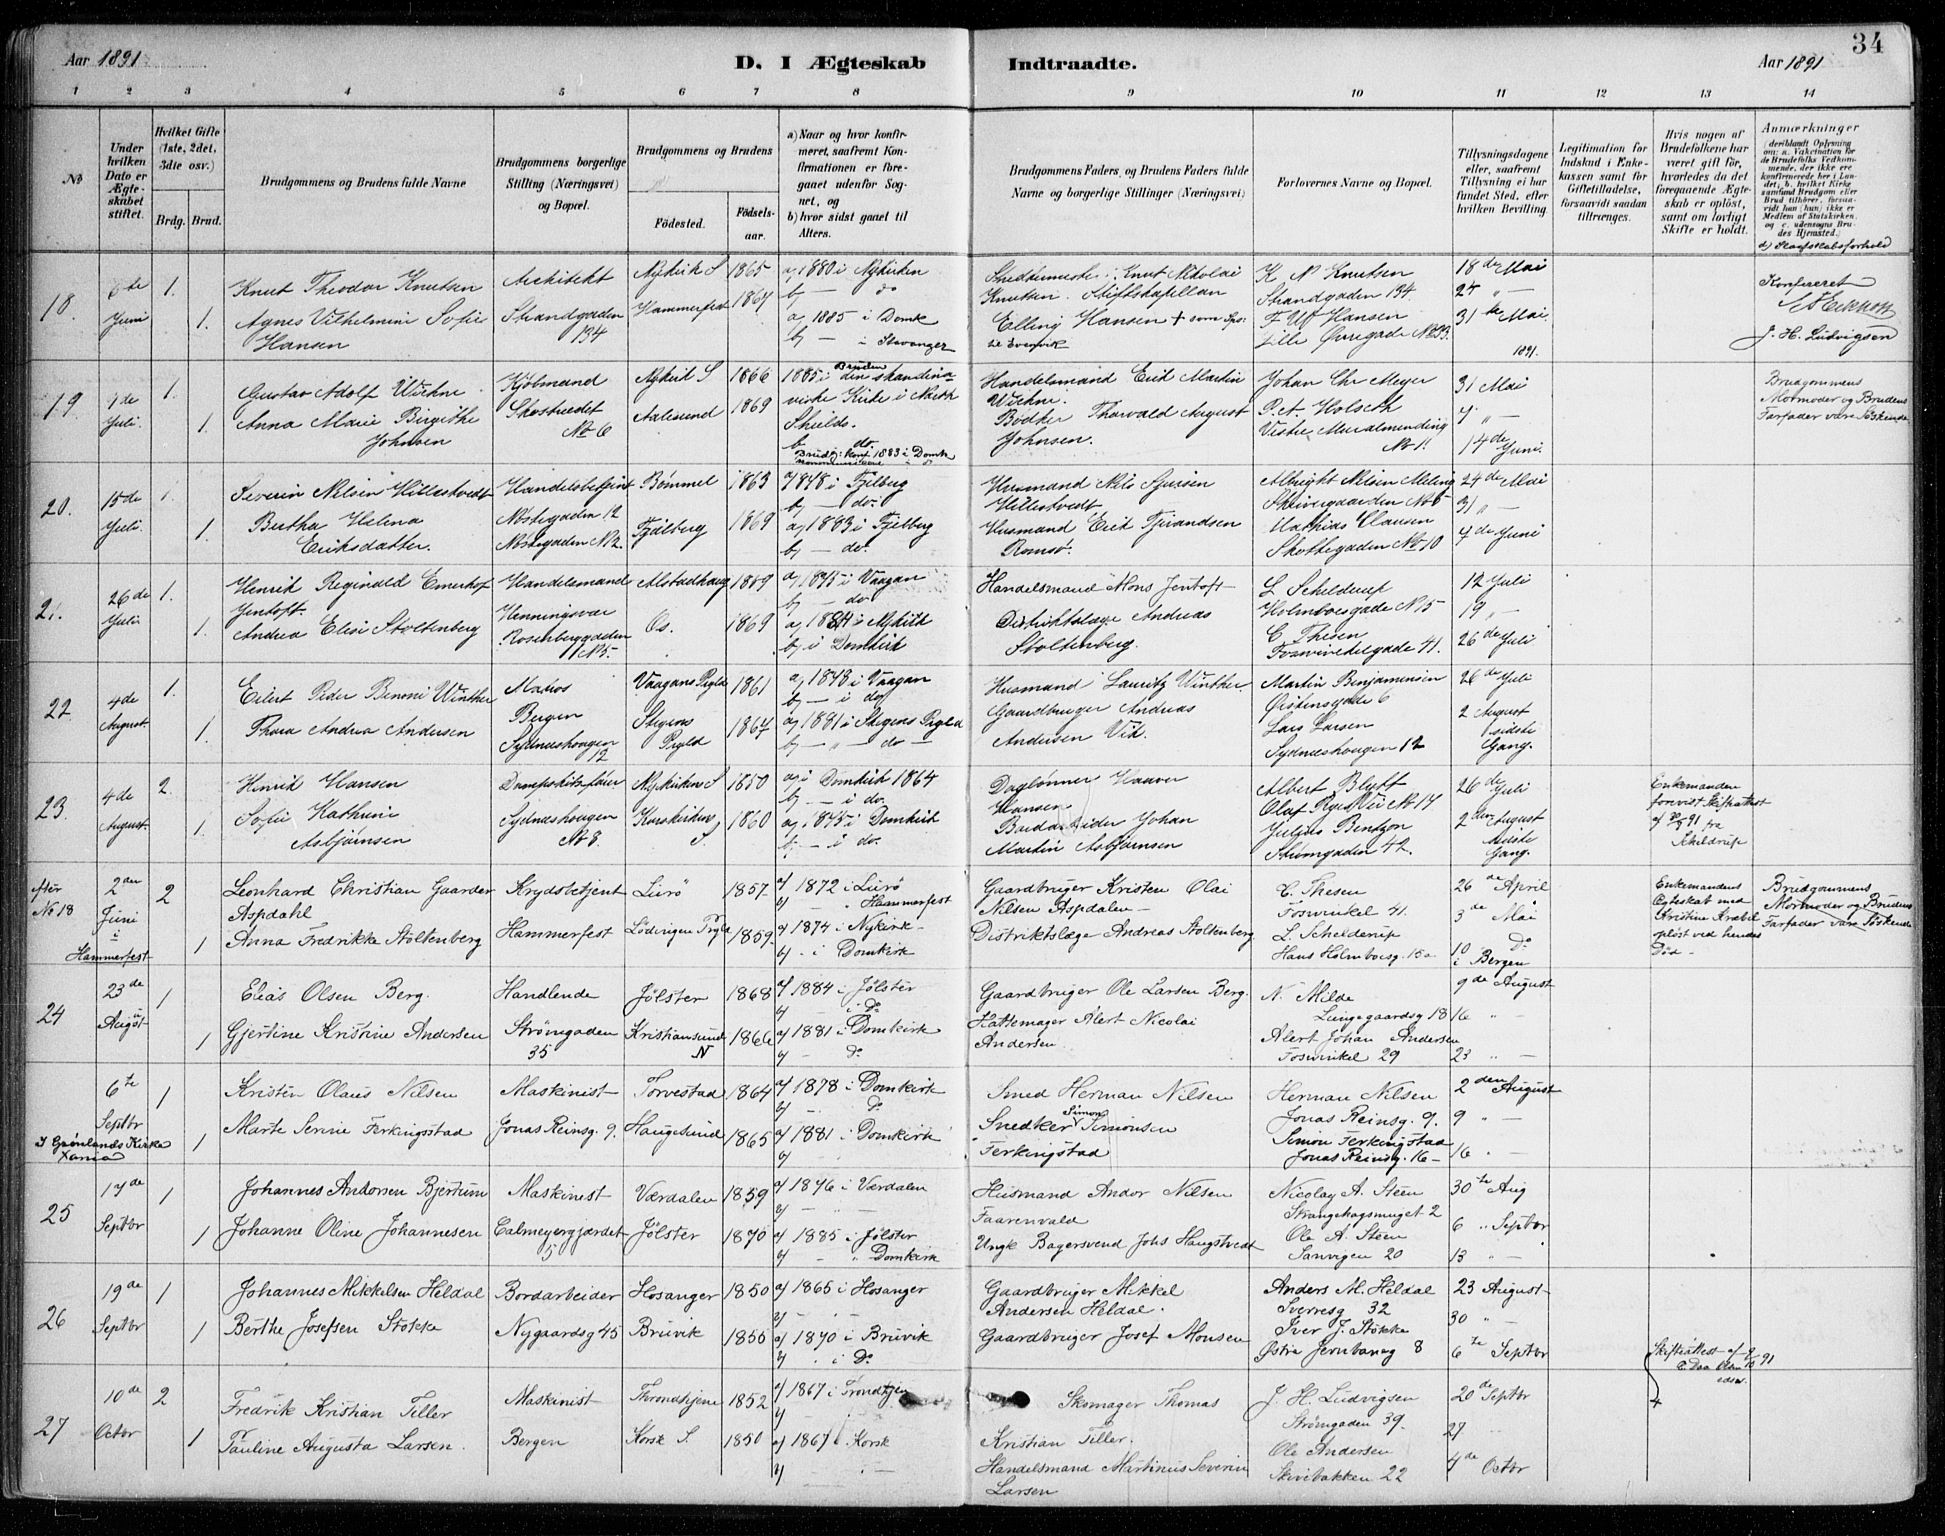 34
Aar 1891
D. I Ægteskab Indtraadte.
Aar 1891
1 2 3 4 5 6 7 8 9 10 11 12 13 14
No
Under hvilken Dato er Ægteskabet stiftet.
Hvilket Gifte (1ste, 2det, 3die osv.)
Brdg. Brud.
Brudgommens og Brudens fulde Navne
Brudgommens borgerlige Stilling (Næringsvei) og Bopæl.
Brudgommens og Brudens
Fødested.
Fødselsaar.
a) Naar og hvor konfirmeret, saafremt Konfirmationen er foregaaet udenfor Sognet, og
b) hvor sidst gaaet til Alters.
Brudgommens Faders, og Brudens Faders fulde Navne og borgerlige Stillinger (Næringsvei)
Forlovernes Navne og Bopæl.
Tillysningsdagene eller, saafremt Tillysning ei har fundet Sted, efter hvilken Bevilling.
Legitimation for Indskud i Enkekassen samt for Giftetilladelse, forsaavidt saadan tiltrænges.
Hvis nogen af Brudefolkene har været gift før, hvorledes da det foregaaende Ægteskab er opløst, samt om lovligt Skifte er holdt.
Anmærkninger (deriblandt Oplysning om: a. Vakcination for de Brudefolks Vedkommende, der ikke ere konfirmerede her i Landet; b. hvilket Kirkesamfund Brudgom eller Brud tilhører, forsaavidt han (hun) ikke er Medlem af Statskirken, og c. udensogns Brudes Hjemsted.)
d) Slægtskabsforhold
18.
6te Juni
1. 1.
Knut Theodor Knutsen
Agnes Vilhelmine Sofie Hansen
Architekt
Strandgaden 194
Nykirk S 1865
Hammerfest 1867
a) 1880 i Nykirken
b) — do
a) 1885 i Domk
b) — i Stavanger
Knut Nikolai Knutsen. Stiftskapellan
Elling Hansen +
K. N. Knutsen
Strandgaden 194
18de Mai
24 "
31te Mai
1891.
Konfereret
J. H. Ludvigsen
19
1de Juli.
1. 1.
Gustav Adolf Wichne
Anna Marie Birgithe Johnsen
Kjøbmand
No 6
Nykirk S 1866
Aalesund 1869
1885 i den skandinaviske Kirke i North Shields.
b do.
Brudg: konf 1883 i Domk
Handelsmand Erik Martin Wichne.
Bødker Thorvald August Johnsen.
Johan Chr Meyer
P. A. Holseth
31 Mai
7 "
14de Juni.
Brudgommens Mormoder og Brudens Farfader vare Søskende
20.
15de Juli
1. 1.
Severin Nilsen Hillestvedt
Bertha Helena Eriksdatter.
Handelsbetjent
Nøstegaden 12
Nøstegaden No 2.
Bømmel 1863
Fjelberg 1869
a) 1878 i Fjelberg
b) — do.
a) 1883 i Fjelberg
b) — do.
Husmand Nils Sjursen Hillestvedt
Husmand Erik Tjerandsen Romsø.
Albright Nilsen Meling
Skivegaarden No 5
Mathias Clausen
Skottegaden No 10
24de Mai
31 "
7de Juni
21.
26de Juli
1. 1.
Henrik Reginald Emerhof Jentoft.
Andrea Elisi Stoltenberg
Handelsmand
Henningsvær
Rosenberggaden No 5.
Alstadhaug 1859
Os. 1869
a) 1875 i Vaagan
b) — do
a) 1884 i Nykirk
b) i Domkirk
Handelsmand Mons Jentoft
Distriktslæge Andreas Stoltenberg.
L Schelderup
Holmboesgade No 15
C. Thesen
Foswinckelgade 41.
12 Juli
19 "
26de Juli
22.
4de August.
1. 1.
Eilert Peder Benoni Winther
Thora Andrea Andersen
Matros
Bergen
Sydneshaugen 12
Vaagans Prgld 1861
Stegens Prgld 1867
a) 1878 i Vaagan
b) — i do
a) 1881 i Stegens Prgld
b) — " — do —
Husmand Lauritz Winther
Gaardbruger Andreas Andersen Vid.
Martin Benjaminsen
Øisteinsgade 6
Lars Larsen
Sydneshaugen 12
26de Juli
2 August
sidste Gang.
23.
4de August.
2. 1.
Henrik Hansen
Sofie Kathrine Asbjørnsen
Sydneshaugen No 8.
Nykirken S 1850
Korskirken S. 1860
a) i Domkirk 1864
b) — i do.
a) 1875 i Domkirk
b) — i do.
Daglønner Haaver Hansen
Johan Martin Asbjørnsen
Albert Blytt
Olaf Ryes Vei No 17
Julius Bentzon
Strømgaden 42.
26de Juli
2den August
sidste Gang.
Enkemanden forevist Skifteattest
fra Scheldrup
efter No 18
2den Juni i Hammerfest
2 1
Leonhard Christian Gaarder Aspdahl
Anna Fredrikke Stoltenberg
Krydsbetjent
Hammerfest
Lurø 1857.
Lødingen Prgld 1859.
a) 1872 i Lurø
b) " Hammerfest
a) 1874 i Nykirk —
b) . i Domkirk
Gaardbruger Kristen Olai Nilsen Aspdalen —
Distriktslæge Andreas Stoltenberg
C. Thesen
Foswinkel 41.
L. Schelderup
Hans Holmboesg. 15a
26de April
3de Mai
10 Do
i Bergen
Enkemandens Egteskab med Kristine Krabel opløst ved hendes Død —
Brudgommens Mormoder og Brudens Farfader vare Søskende
24
23de August
1 1
Elias Olsen Berg.
Gjertine Kristine Andersen
Handlende
Strømgaden 35
Jølster 1868
Kristiansund N 1866
a) 1884 i Jølster
b) i Do
a) 1881 i Domkirk
b) — Do
Gaardbruger Ole Larsen Berg.
Hattemager Alert Nicolai Andersen
N. Milde
Lungegaardsg 18
Alert Johan Andersen
Foswinkel 29
9de August
16 " —
23 " —
6te Septbr
I Grønlands Kirke Xania
1 1
Kristen Olaus Nilsen
Marte Serine Ferkingstad
Maskinist
Jonas Reinsg. 9.
Torvestad 1864
Haugesund 1865
a) 1878 i Domkirk
b) — Do
a) 1881 i Domkirk
b)
Smed Herman Nilsen
Snedker Simon Simonsen Ferkingstad
Herman Nilsen
Jonas Reinsg. 9.
Simon Ferkingstad
Jonas Reinsg. 16 —
2den August
9 " —
16 " —
25
17de Septbr
1 1
Johannes Andorsen Bjertum
Johanne Oline Johannesen
Maskinist
Calmeyergjærdet 5
Værdalen 1859
Jølster 1870
a) 1876 i Værdalen
b) — " —
a) 1885 i Jølster
b) — " Domkirk
Husmand Andor Nilsen Faarenvald
Ungk Bagersvend Johs Haugstvedt
Nicolay A. Steen
Strangehagsmuget 2
Ole A. Steen
Sanvigen 20
30te Aug
6 " Septbr
13 " —
26
19de Septbr
1 1
Johannes Mikkelsen Heldal
Berthe Josefsen Stokke
Bordarbeider
Nygaardsg 45
Hosanger 1850
Bruvik 1850
a) 1865 i Hosanger
b) — " —
a) 1870 i Bruvik
b) " i Do
Gaardbruger Mikkel Andersen Heldal.
Gaardbruger Josef Monsen
Anders M. Heldal
Sverresg 32
Iver J. Stokke
Østre Jernbaneg 8
23 August
30 " —
6te Septbr
27
10de Octbr
2 1
Fredrik Kristian Teller
Pauline Augusta Larsen.
Maskinist
Bergen
Throndhjem 1852
Korsk S. 1850
a) 1867 i Trondhjem
b) — " —
a) 1867 i Korsk
b) " —
Skomager Thomas Kristian Teller.
Handelsmand Martinus Severin Larsen
J. H. Ludvigsen
Strømgaden 39.
Ole Andersen
Skivebakken 22
20de Septbr
27 "
4de Octbr
Skifteattest af